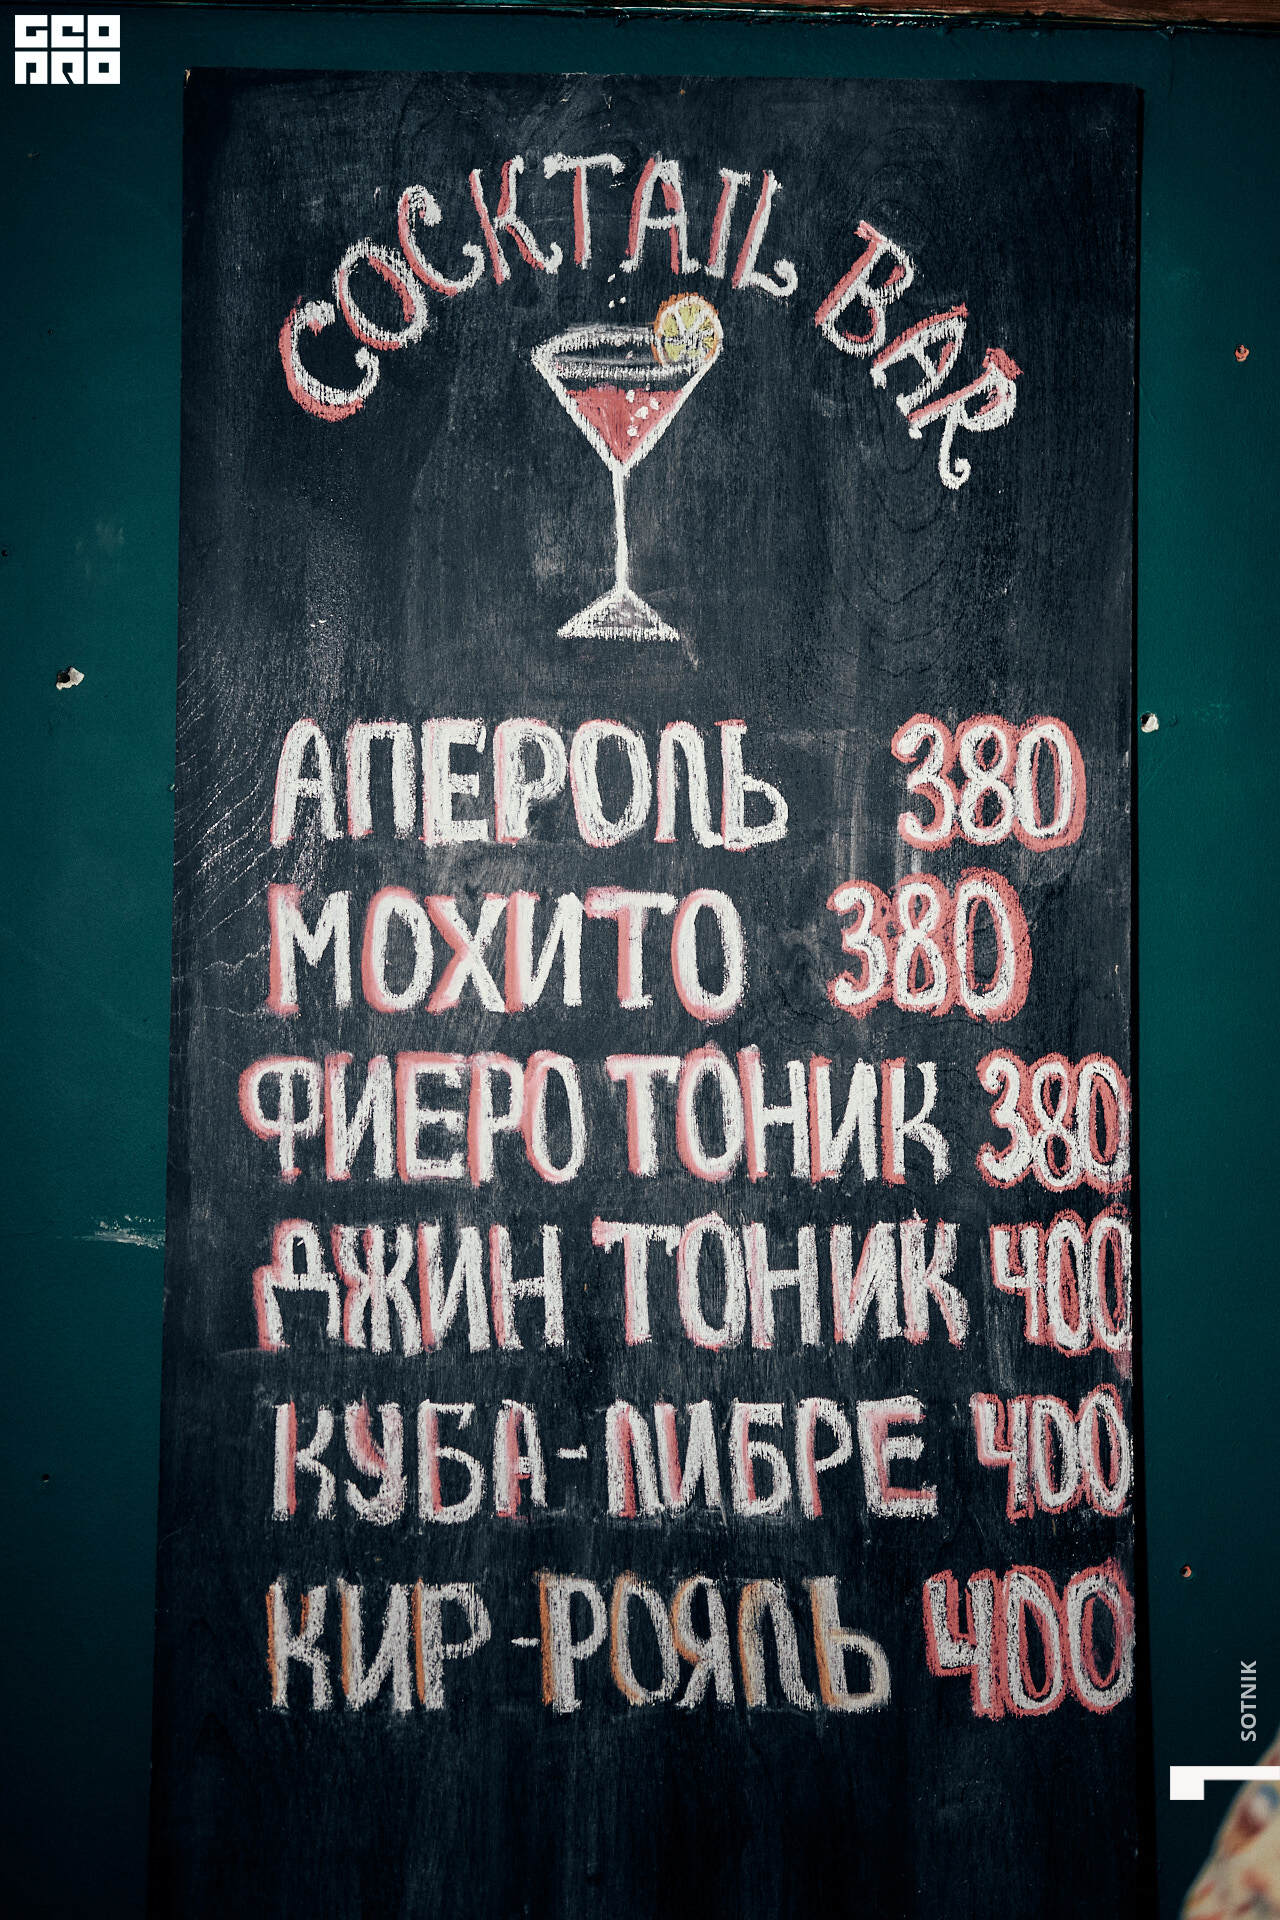 GEO
PRO
COCKTAIL BAR
АПЕРОЛЬ 380
МОХИТО 380
ФИЕРО ТОНИК 380
ДЖИН ТОНИК 400
КУБА-ЛИБРЕ 400
КИР-РОЯЛЬ 400
SOTNIK